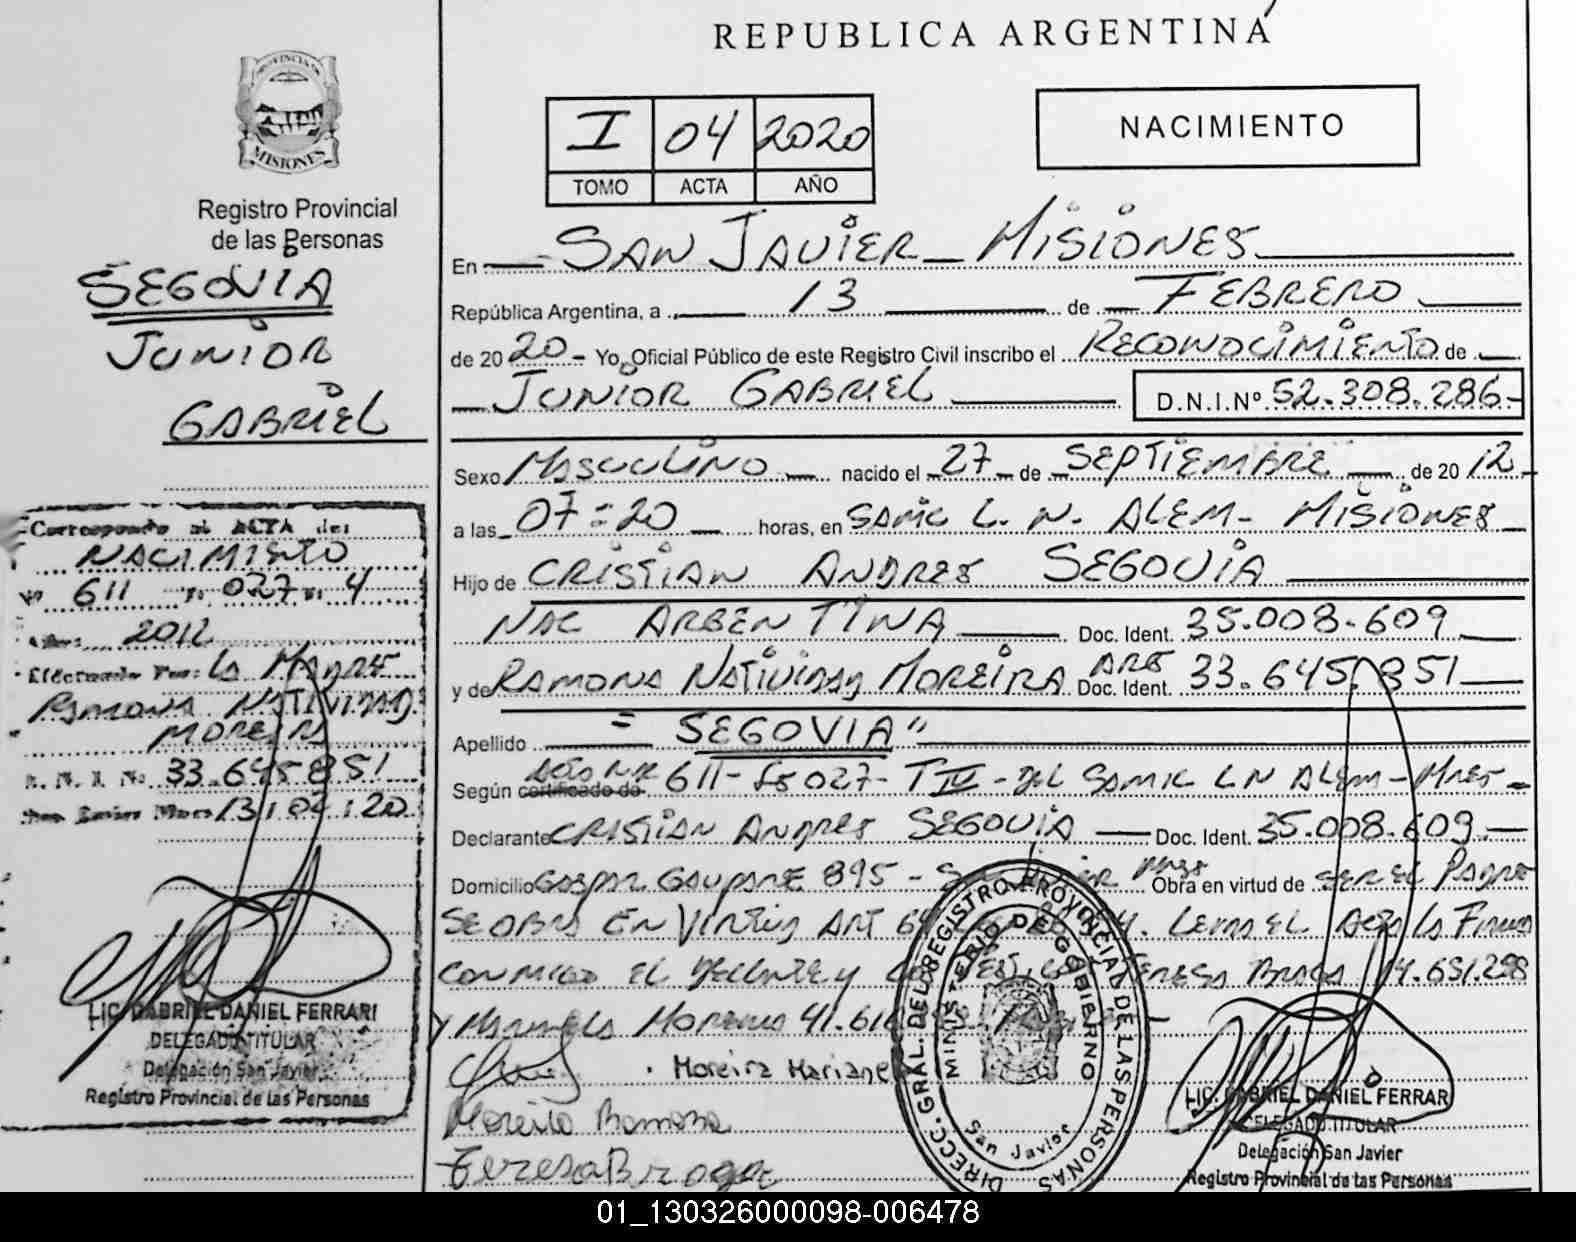 REPUBLICA ARGENTINA
PROVINCIA DE
MISIONES
Registro Provincial
de las Personas
SEGOVIA
JUNIOR
GABRIEL
I 04 2020
TOMO ACTA AÑO
NACIMIENTO
En SAN JAVIER - MISIONES
República Argentina, a 13 de FEBRERO
de 2020 - Yo, Oficial Público de este Registro Civil inscribo el RECONOCIMIENTO de
JUNIOR GABRIEL D.N.I.Nº 52.308.286-
Sexo MASCULINO nacido el 27 de SEPTIEMBRE de 2012-
a las 07:20 horas, en SAMIC L. N. ALEM - MISIONES
Hijo de CRISTIAN ANDRES SEGOVIA
NAC ARGENTINA Doc. Ident. 35.008.609
y de RAMONA NATIVIDAD MOREIRA ARG Doc. Ident. 33.645.851
Apellido = SEGOVIA"
Según certificado de ACTA Nº 611 - Fº 027 - T IV - del SAMIC LN ALEM - Mnes -
Declarante CRISTIAN ANDRES SEGOVIA Doc. Ident. 35.008.609.-
Domicilio 895 - Obra en virtud de SER EL PADRE
SE OBRA EN VIRTUD ART EL ACTA LA FIRMA
CONMIGO EL TERESA BRAGA 14.651.298
Y 41.616
Moreira Mariane
Moreira Ramona
Teresa Braga
Corresponde al ACTA de:
NACIMIENTO
Nº 611 Fº 027 Tº 4
Año: 2012
Efectuada Por: LA MADRE
RAMONA NATIVIDAD
MOREIRA
D. N. I. Nº 33.645851
San Javier Mnes 13/02/20
LIC. GABRIEL DANIEL FERRARI
DELEGADO TITULAR
Delegación San Javier
Registro Provincial de Las Personas
DIRECC. GRAL. DEL REGISTRO PROVINCIAL DE LAS PERSONAS
MINISTERIO DE GOBIERNO
San Javier
LIC. GABRIEL DANIEL FERRARI
DELEGADO TITULAR
Delegación San Javier
Registro Provincial de las Personas
01_130326000098-006478